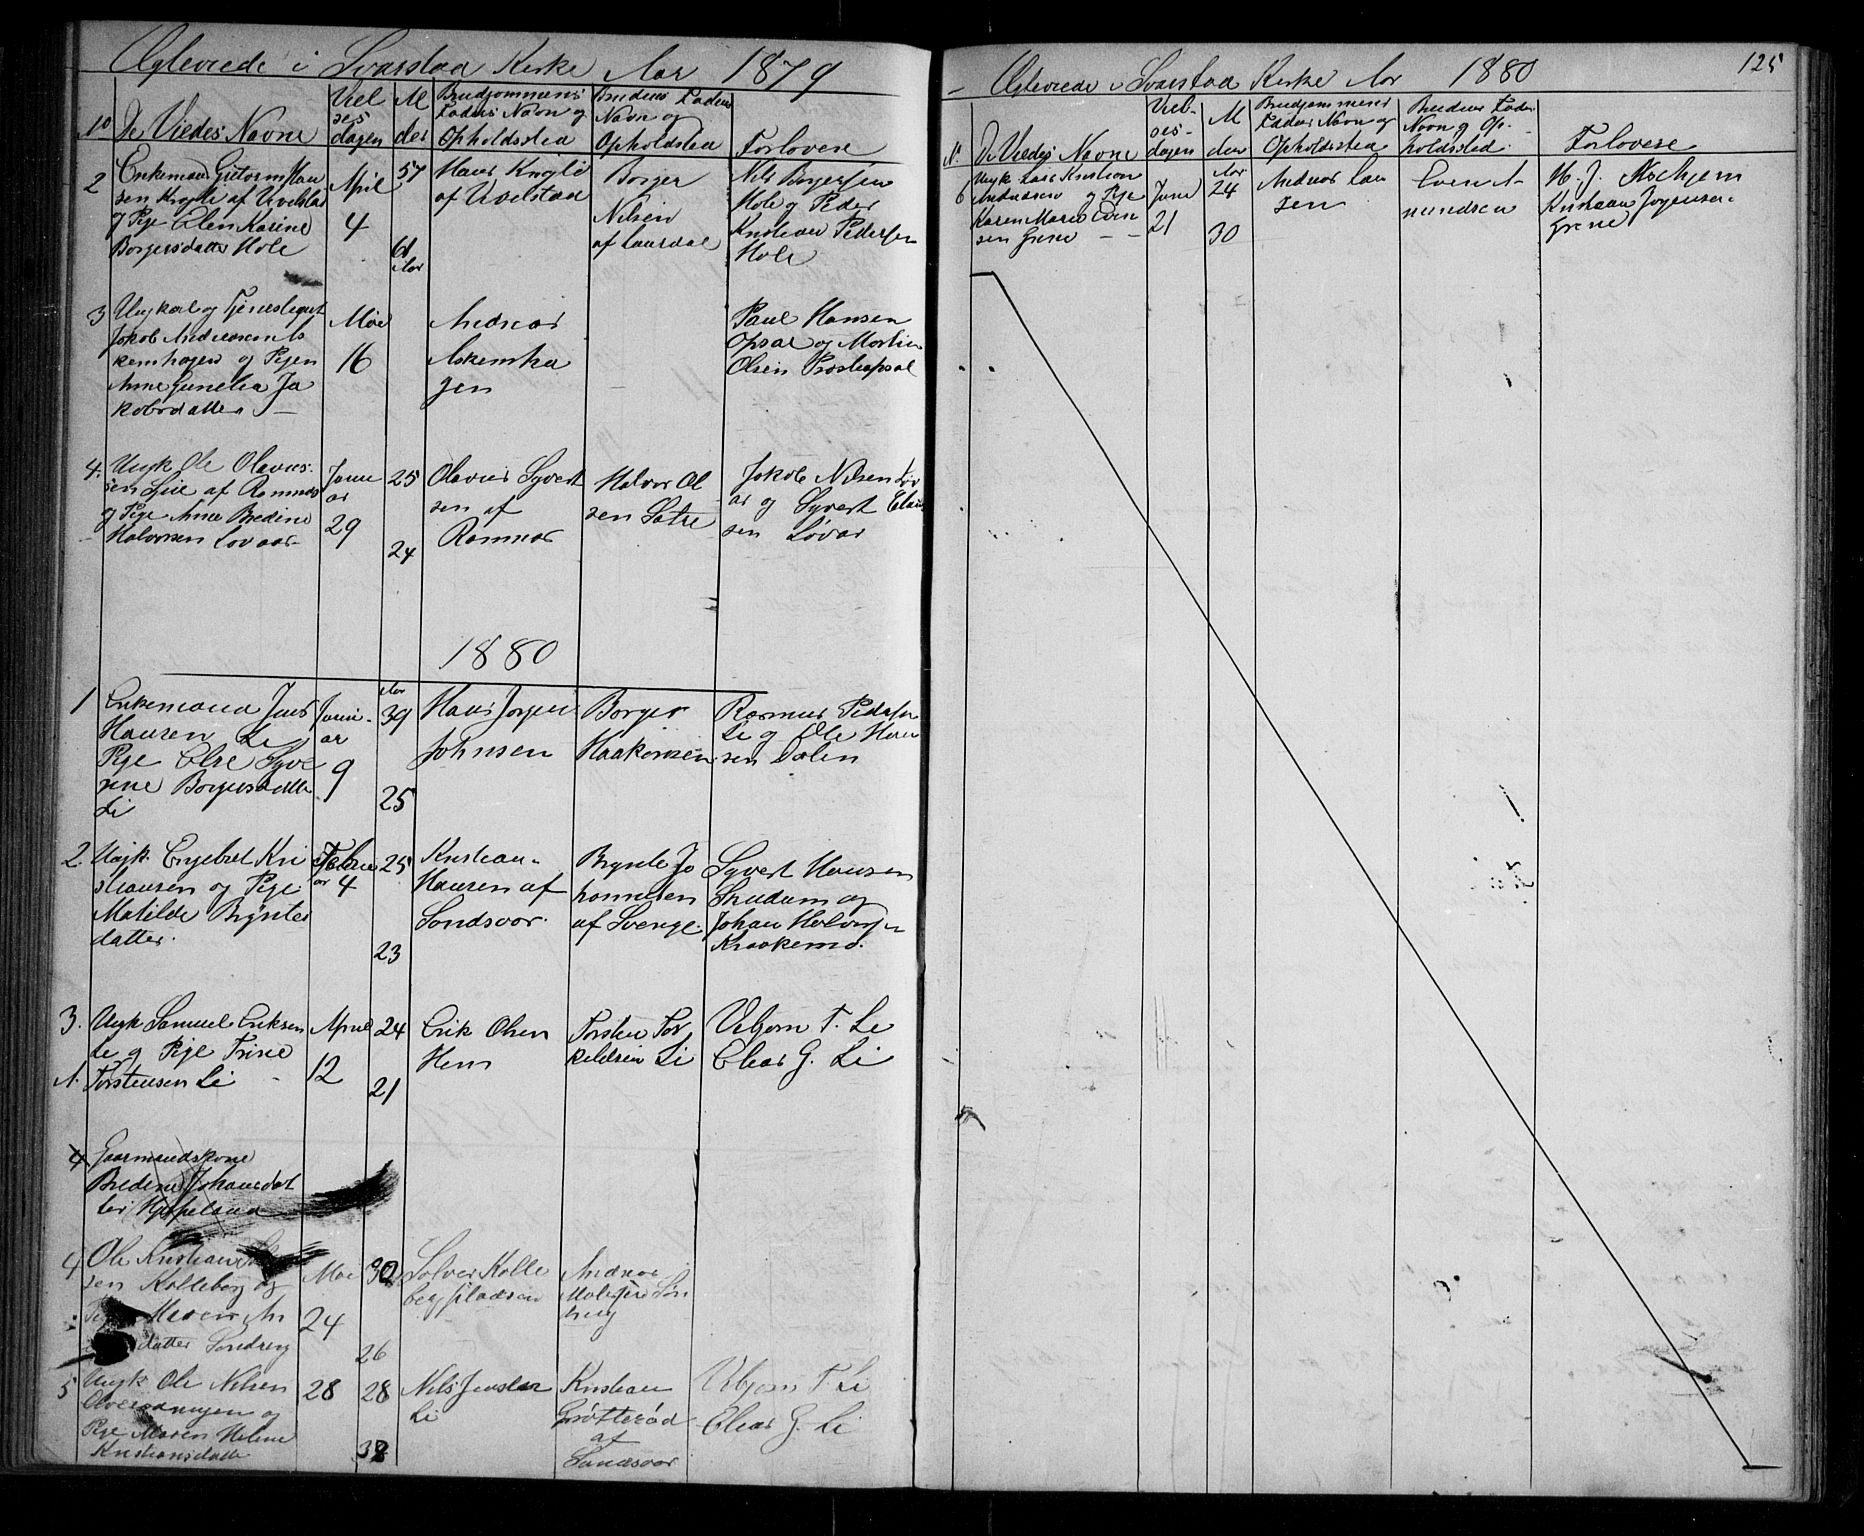 Ægteviede i Svarstad Kirke Aar 1879
No De Viedes Navne
Viel
ses
dagen
Al
der
Brudgommens
Faders Navn og
Opholdsted
Brudens Faders
Navn og
Opholdsted
Forlovere
2 Enkemand Guttorm Han
sen af
og Pige Elen Karine
Borgersdatter Hole
April
4
57
61
Aar
Hans
af
Borger
Nilsen
af Laurdal
Nils Borgersen
Hole og Peder
Kristian Pedersen
Hole
3 Ungkarl og
Jakob Andreasen As
kemhagen og Pigen
Anne Gunelia Ja
kobsdatter
Mai
16
Andreas
Askemha
gen
Paul Hansen
Opsal og Martin
Olsen
4. Ungk Ole Olavus
sen af Ramnes
og Pige Anne Bredine
Halvorsen Lovaas
Janu
ar
29
25
24
Olavus Syvert
sen af
Ramnes
Halvor Ol
sen Sætre
Jakob Nilsen Løv
as og Syvert Elias
sen Løvas
1880
1 Enkemand Jens
Hansen Li
Pige Else Syve
rine Borgersdatter
Li
Janu-
ar
9
Aar
39
25
Hans Jørgen
Johnsen
Borger
Haakonsen
Rasmus Pedersen
Li og Ole Han
sen Dalen
2. Ungk. Engebret Kri
stiansen og Pige
Matilde Bryntes
datter.
Febru
ar 4
25
23
Kristian
Hansen af
Sandsvær.
Brynte Jo
hannesen
af Sverige.
Syvert Hansen
og
Johan Halvorsen
Kraakemo.
3. Ungk Samuel Eriksen
Li og Pige Trine
Torstensen Li
April
12
24
21
Erik Olsen
Hem
Torsten Tor
keldsen Li
Vebjørn T. Li
Elias G. Li
4 Gaarmandskone
Bredine Johannesdat
ter
4 Ole Kristian
sen Kolleborg og
Maren An
datter Sondreng
Mai
24
30
26
Solver Kolle
Andreas
5 Ungk Ole Nilsen
og
Pige Maren Helene
Kristiansdatter
28
28
38
Nils Jensen
Li
Kristian
Grøtterød
af
Sandsvær
Vebjørn T Li
Elias G. Li
Ægteviede i Svarstad Kirke Aar 1880
125
N. De Viedes Navne
Viel-
ses-
dagen
Al
der
Brudgommens
Faders Navn og
Opholdssted
Brudens Faders
Navn og Op-
holdssted.
Forlovere
6 Ungk. Lars Kristian
Andreasen og Pige
Karen Marie Even
sen Grene
Juni
21
Aar
24
30
Andreas Lar
sen
Even A-
mundsen
H. J. Askjem
Kristian Jørgensen
Grene